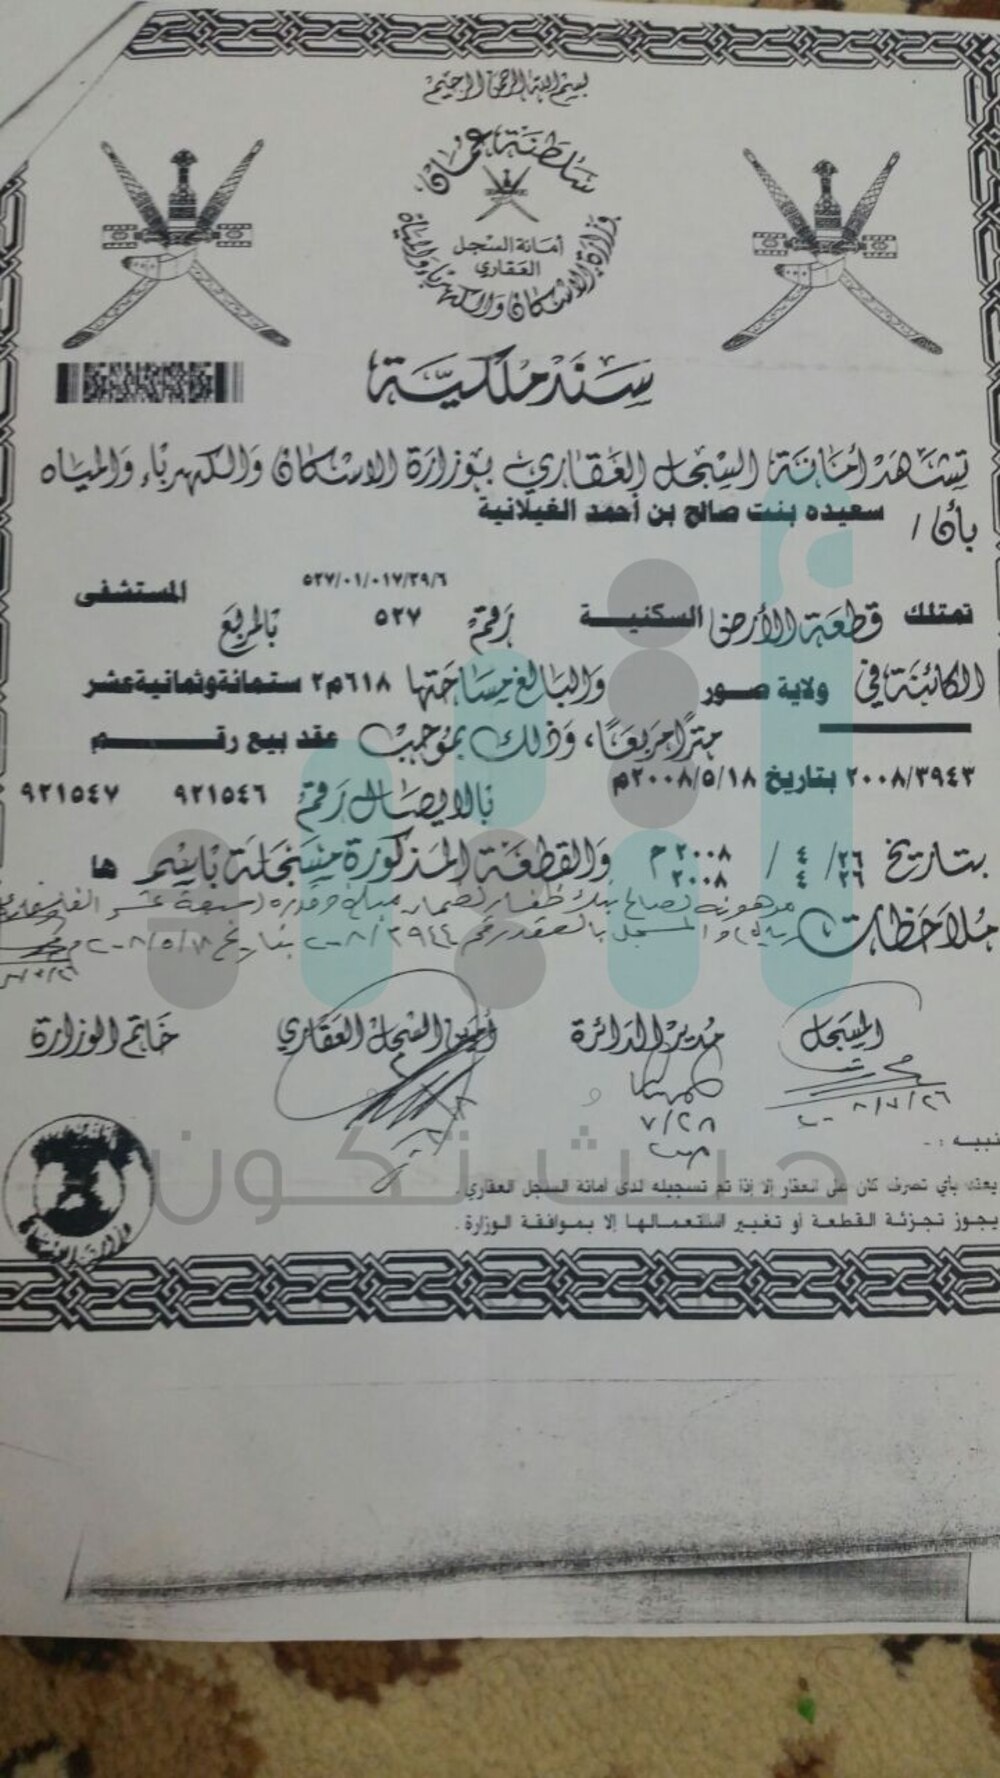 بسم الله الرحمن الرحيم
سلطنة عمان
وزارة الاسكان والكهرباء والمياه
أمانة السجل
العقاري
سند ملكية
تشهد أمانة السجل العقاري بوزارة الاسكان والكهرباء والمياه
بأن / سعيده بنت صالح بن أحمد الغيلانية
٥٢٧/٠١/٠١٧/٣٩/٦
تمتلك قطعة الأرض السكنية رقم ٥٢٧ بالمربع المستشفى
الكائنة في ولاية صور والبالغ مساحتها ٦١٨م٢ ستمائة وثمانية عشر
مترا مربعا، وذلك بموجب عقد بيع رقم
٢٠٠٨/٣٩٤٣ بتاريخ ٢٠٠٨/٥/١٨م بالايصال رقم ٩٢١٥٤٦ ٩٢١٥٤٧
بتاريخ ٢٦/ ٤ / ٢٠٠٨ م والقطعة المذكورة مسجلة باسم ها
٢٦ ٤ ٢٠٠٨
ملاحظات مرهونة لصالح بنك ظفار لضمان مبلغ وقدره (سبعة عشر الف
ريال) والمسجل بالعقد رقم ٢٠٠٨/٣٩٤٤ بتاريخ ٢٠٠٨/٥/١٨
المسجل مدير الدائرة أمين السجل العقاري خاتم الوزارة
٢٠٠٨/٧/٢٦
٧/٢٨
نبيه : -
يعتد بأي تصرف كان على العقار إلا إذا تم تسجيله لدى أمانة السجل العقاري .
يجوز تجزئة القطعة أو تغيير استعمالها إلا بموافقة الوزارة .
أثير
حيث تكون